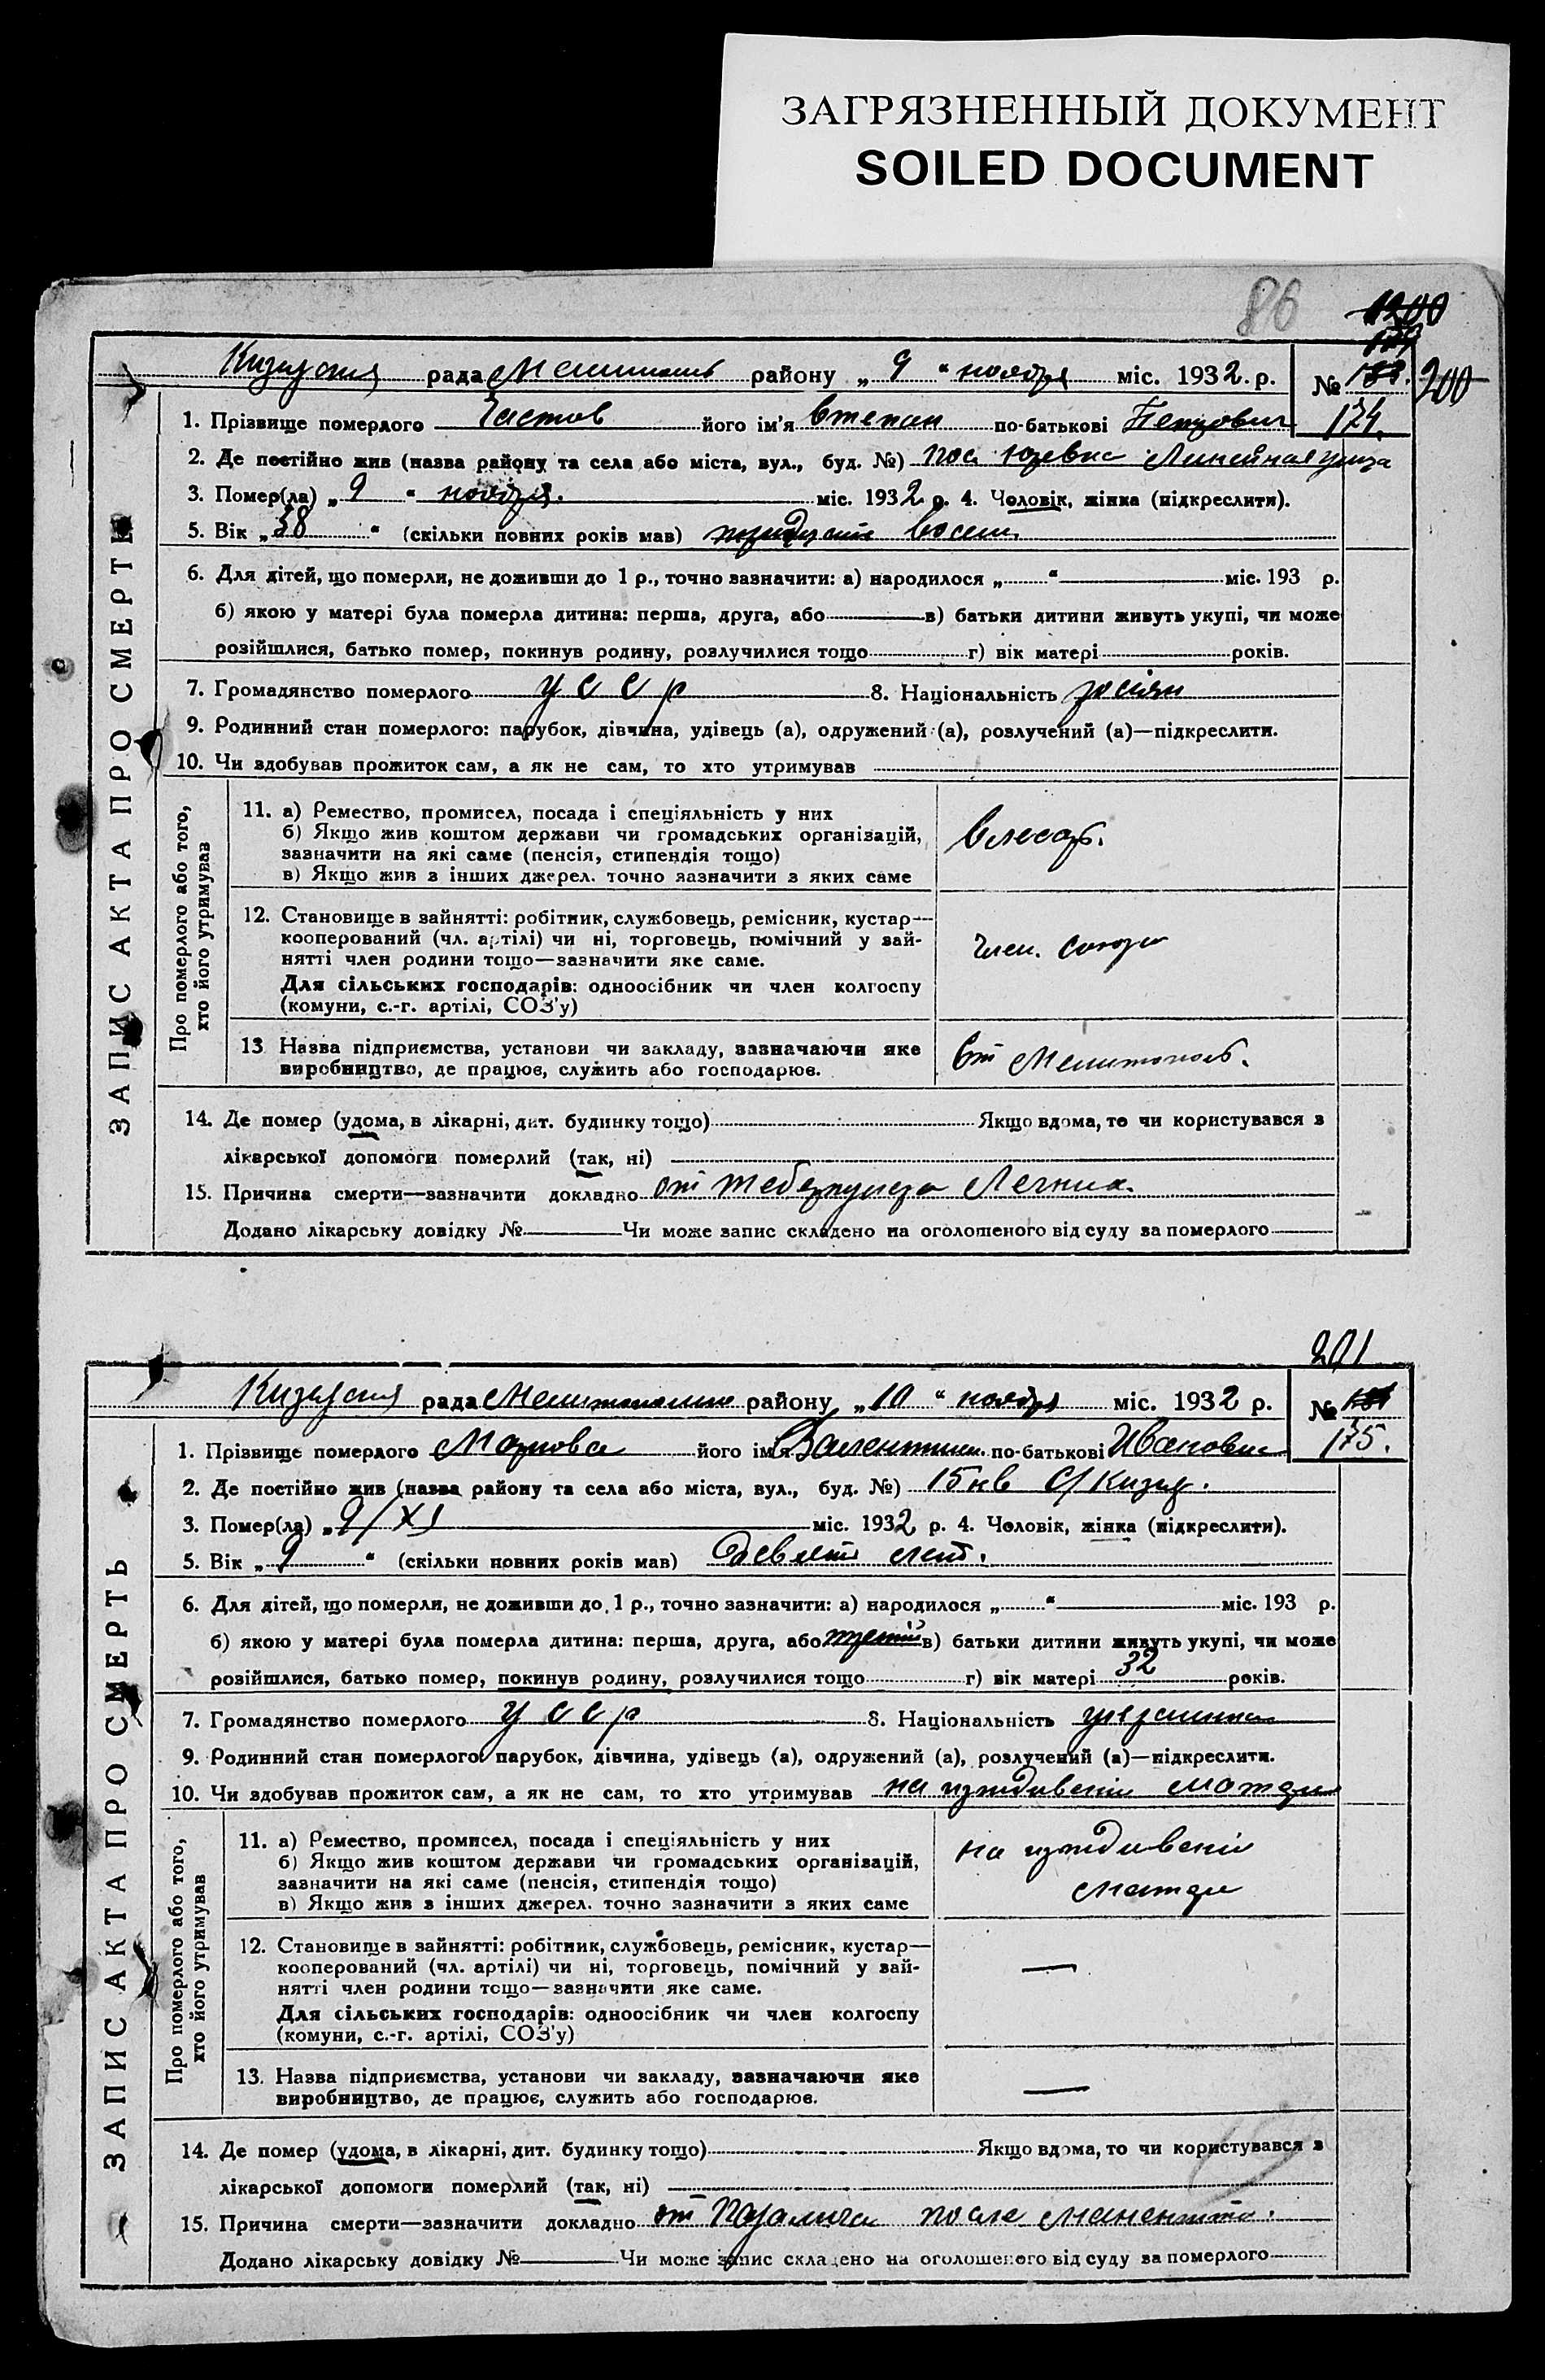 ЗАГРЯЗНЕННЫЙ ДОКУМЕНТ
SOILED DOCUMENT
86
1200
Кизиярская рада Мелитополь району „ 9 “ ноября міс. 1932 р. № 200
174.
ЗАПИС АКТА ПРО СМЕРТЬ
1. Прізвище померлого Частов його ім'я Степан по-батькові Петрович
2. Де постійно жив (назва району та села або міста, вул., буд. №) пос. Линейная улица
3. Помер(ла) „ 9 “ ноября. міс. 1932 р. 4. Чоловік, жінка (підкреслити).
5. Вік „ 38 “ (скільки повних років мав) тридцать восем.
6. Для дітей, що померли, не доживши до 1 р., точно зазначити: а) народилося „ “ міс. 193 р.
б) якою у матері була померла дитина: перша, друга, або в) батьки дитини живуть укупі, чи може
розійшлися, батько помер, покинув родину, розлучилися тощо г) вік матері років.
7. Громадянство померлого УССР 8. Національність росіян
9. Родинний стан померлого: парубок, дівчина, удівець (а), одружений (а), розлучений (а)—підкреслити.
10. Чи здобував прожиток сам, а як не сам, то хто утримував
Про померлого або того,
хто його утримував
11. а) Ремество, промисел, посада і спеціяльність у них
б) Якщо жив коштом держави чи громадських організацій,
зазначити на які саме (пенсія, стипендія тощо)
в) Якщо жив з інших джерел. точно зазначити з яких саме
Слесарь.
12. Становище в зайнятті: робітник, службовець, ремісник, кустар—
кооперований (чл. артілі) чи ні, торговець, помічний у зай-
нятті член родини тощо—зазначити яке саме.
Для сільських господарів: одноосібник чи член колгоспу
(комуни, с.-г. артілі, СОЗ'у)
член. союза
13 Назва підприємства, установи чи закладу, зазначаючи яке
виробництво, де працює, служить або господарює.
Ст Мелитополь.
14. Де помер (удома, в лікарні, дит. будинку тощо) Якщо вдома, то чи користувався з
лікарської допомоги померлий (так, ні)
15. Причина смерти—зазначити докладно от Леғких.
Додано лікарську довідку № Чи може запис складено на оголошеного від суду за померлого
201
Кизиярская рада району „ 10 “ ноября міс. 1932 р. №
175.
ЗАПИС АКТА ПРО СМЕРТЬ
1. Прізвище померлого його ім'я Валентина по-батькові Ивановна
2. Де постійно жив (назва району та села або міста, вул., буд. №) 15 кв С/ Кизияр.
3. Помер(ла) „ 9/XI міс. 1932 р. 4. Чоловік, жінка (підкреслити).
5. Вік „ 9 “ (скільки повних років мав) девять лет.
6. Для дітей, що померли, не доживши до 1 р., точно зазначити: а) народилося „ “ міс. 193 р.
б) якою у матері була померла дитина: перша, друга, або третій в) батьки дитини живуть укупі, чи може
розійшлися, батько помер, покинув родину, розлучилися тощо г) вік матері 32 років.
7. Громадянство померлого УССР 8. Національність украинка
9. Родинний стан померлого: парубок, дівчина, удівець (а), одружений (а), розлучений (а)—підкреслити.
10. Чи здобував прожиток сам, а як не сам, то хто утримував на иждивении матери
Про померлого або того,
хто його утримував
11. а) Ремество, промисел, посада і спеціяльність у них
б) Якщо жив коштом держави чи громадських організацій,
зазначити на які саме (пенсія, стипендія тощо)
в) Якщо жив з інших джерел. точно зазначити з яких саме
на иждивении
матери
12. Становище в зайнятті: робітник, службовець, ремісник, кустар—
кооперований (чл. артілі) чи ні, торговець, помічний у зай-
нятті член родини тощо—зазначити яке саме.
Для сільських господарів: одноосібник чи член колгоспу
(комуни, с.-г. артілі, СОЗ'у)
—
13. Назва підприємства, установи чи закладу, зазначаючи яке
виробництво, де працює, служить або господарює.
—
14. Де помер (удома, в лікарні, дит. будинку тощо) Якщо вдома, то чи користувався з
лікарської допомоги померлий (так, ні)
15. Причина смерти—зазначити докладно от Паралича после
Додано лікарську довідку № Чи може запис складено на оголошеного від суду за померлого